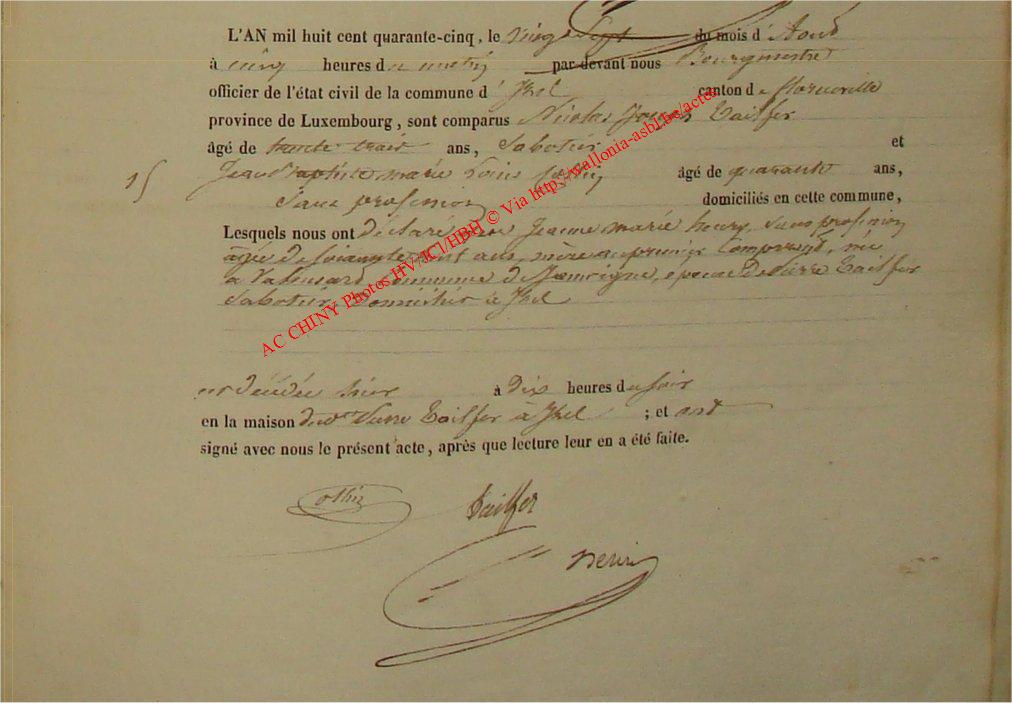 L'AN mil huit cent quarante-cinq, le vingt Sept du mois d'Aout
à cinq heures du matin par devant nous Bourgmestre
officier de l'état civil de la commune d'Izel canton de florenville
province de Luxembourg, sont comparus Nicolas Joseph Tailfer
âgé de trente trois ans, Sabotier et
15 Jean Baptiste marie Louis âgé de quarante ans,
Sans profession domiciliés en cette commune,
Lesquels nous ont déclaré que Jeanne marie henry, sans profession
âgée de soixante ans, mère au premier Comparant, née
à commune de Jamoigne, epouse de Pierre Tailfer
Sabotier, domiciliée à Izel
est décédée hier à dix heures du soir
en la maison dudit Pierre Tailfer à Izel ; et ont
signé avec nous le présent acte, après que lecture leur en a été faite.
Tailfer
AC CHINY Photos HV/JCl/HBH © Via http://wallonia-asbl.be/actes